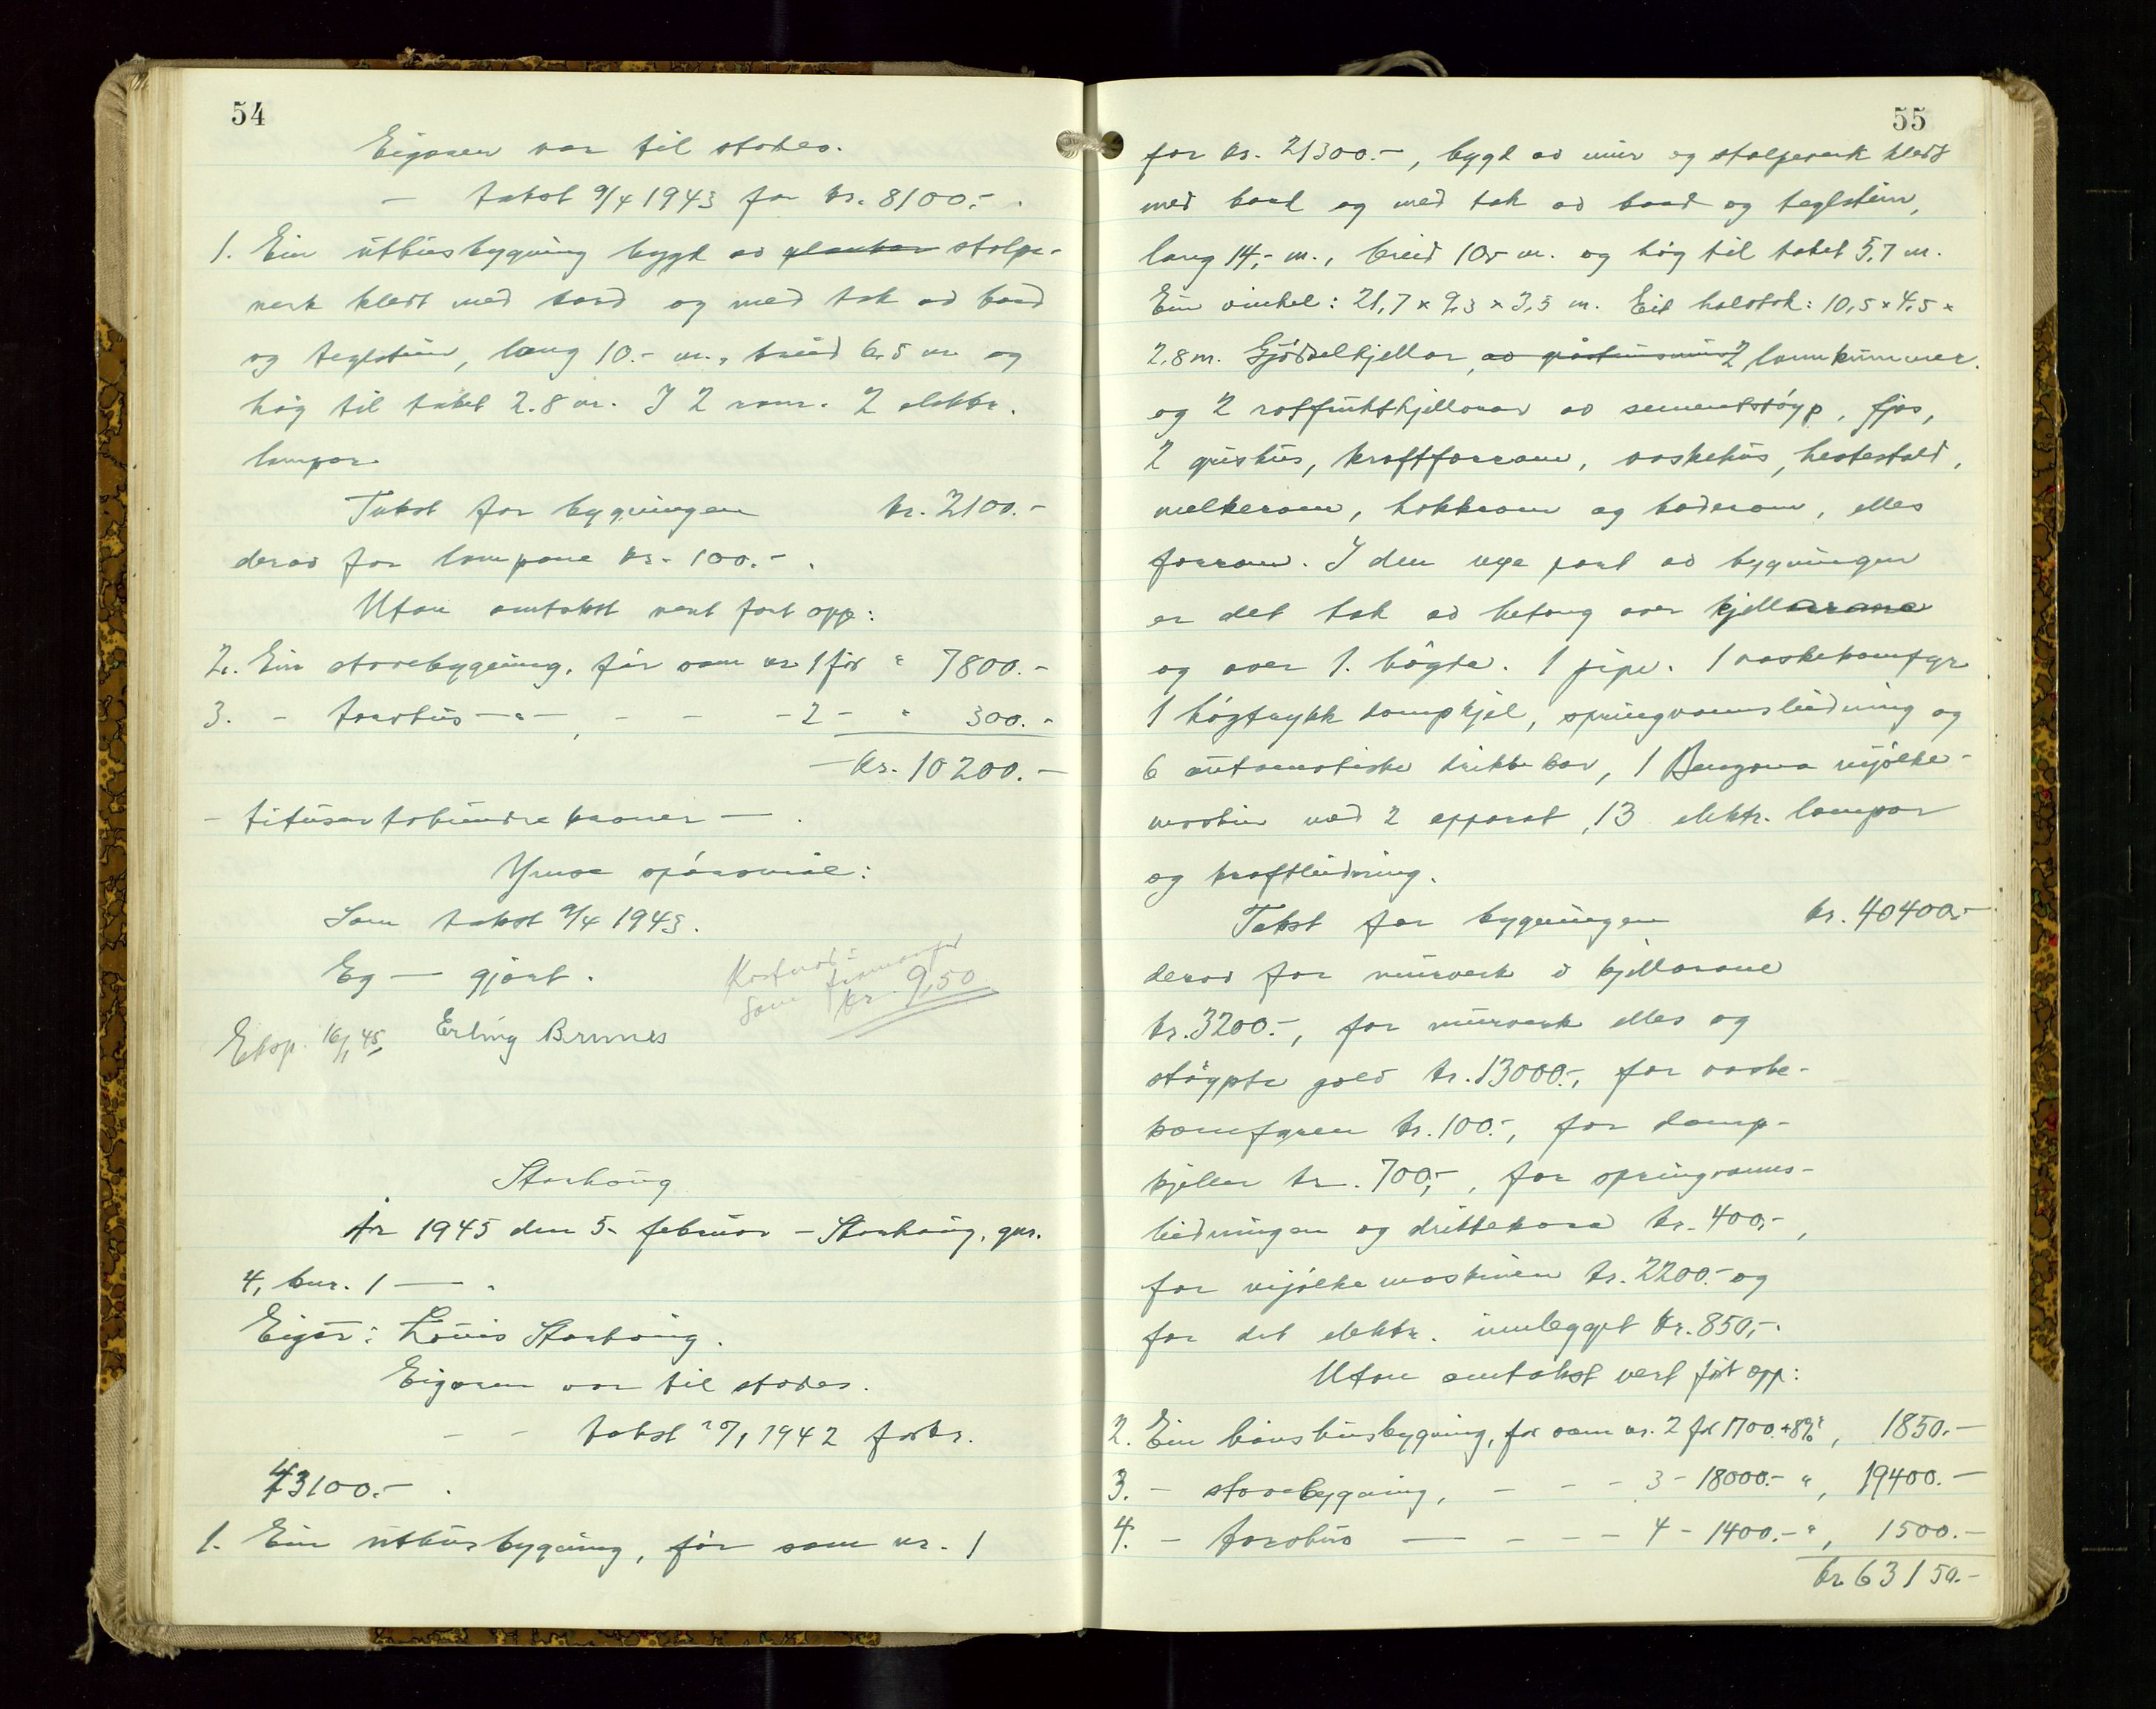 54
Eigaren var til stades.
— takst 9/4 1943 for kr. 8100.- .
1. Ein uthusbygning bygt av plankar stolpe-
verk kledt med bord og med tak av bord
og teglstein, lang 10.- m., breid 6,5 m og
høg til taket 2.8 m. I 2 rom. 2 elektr.
lampor
Takst for bygningen kr. 2100.-
derav for lampone kr. 100.- .
Utan omtakst vert ført opp:
2. Ein stovebygning, før som nr 1 for " 7800.-
3. - torvhus -"- , - - - 2 - " 300.-
- kr. 10200.-
- titusentohundre kroner - .
Ymse spørsmål:
Som takst 9/4 1943.
Eg — gjort .
Kostnad:
Som framanfor
kr. 9,50
Eksp. 16/1 45, Erling Brunes
Storhaug
År 1945 den 5. februar - Storhaug, gnr.
4, bnr. 1 — .
Eigar: Louis Storhaug.
Eigaren var til stades.
- - takst 20/1 1942 for kr.
43100.- .
1. Ein uthusbygning, før som nr. 1
55
for kr. 21300.-, bygt av mur og stolpeverk kledt
med bord og med tak av bord og teglstein,
lang 14,- m., breid 10,- m. og høg til taket 5,7 m.
Ein vinkel: 21,7 x 9,3 x 3,5 m. Eit halvtak: 10,5 x 4,5 x
2,8 m. Gjødselkjellar, av gråsteinsmur 2 lannkummer
og 2 rotfruktkjellarar av sementstøyp, fjøs,
2 grishus, kraftforrom, vaskehus, hestestald,
melkerom, hakkrom og baderom, elles
forrom. I den nye part av bygningen
er det tak av betong over kjellarane
og over 1. høgda. 1 pipe. 1 vaskekomfyr
1 høgtrykk dampkjel, springvannsleidning og
6 automatiske drikkekar, 1 mjølke-
maskin med 2 apparat, 13 elektr. lampor
og kraftleidning.
Takst for bygningen kr. 40400,-
derav for murverk i kjellarane
kr. 3200.-, for murverk elles og
støypte golv kr. 13000.-, for vaske-
komfyren kr. 100.-, for damp-
kjelen kr. 700,-, for springvanns-
leidningen og drikkekara kr. 400,-,
for mjølkemaskinen kr. 2200.- og
for det elektr. innlegget kr. 850,-.
Utan omtakst vert ført opp:
2. Ein våningshusbygning, før som nr. 2 for 1700.+8% , 1850.-
3. - stovebygning, - - - 3 - 18000.- " , 19400.-
4. - torvhus — - - - 4 - 1400.- " , 1500.-
kr 63150.-